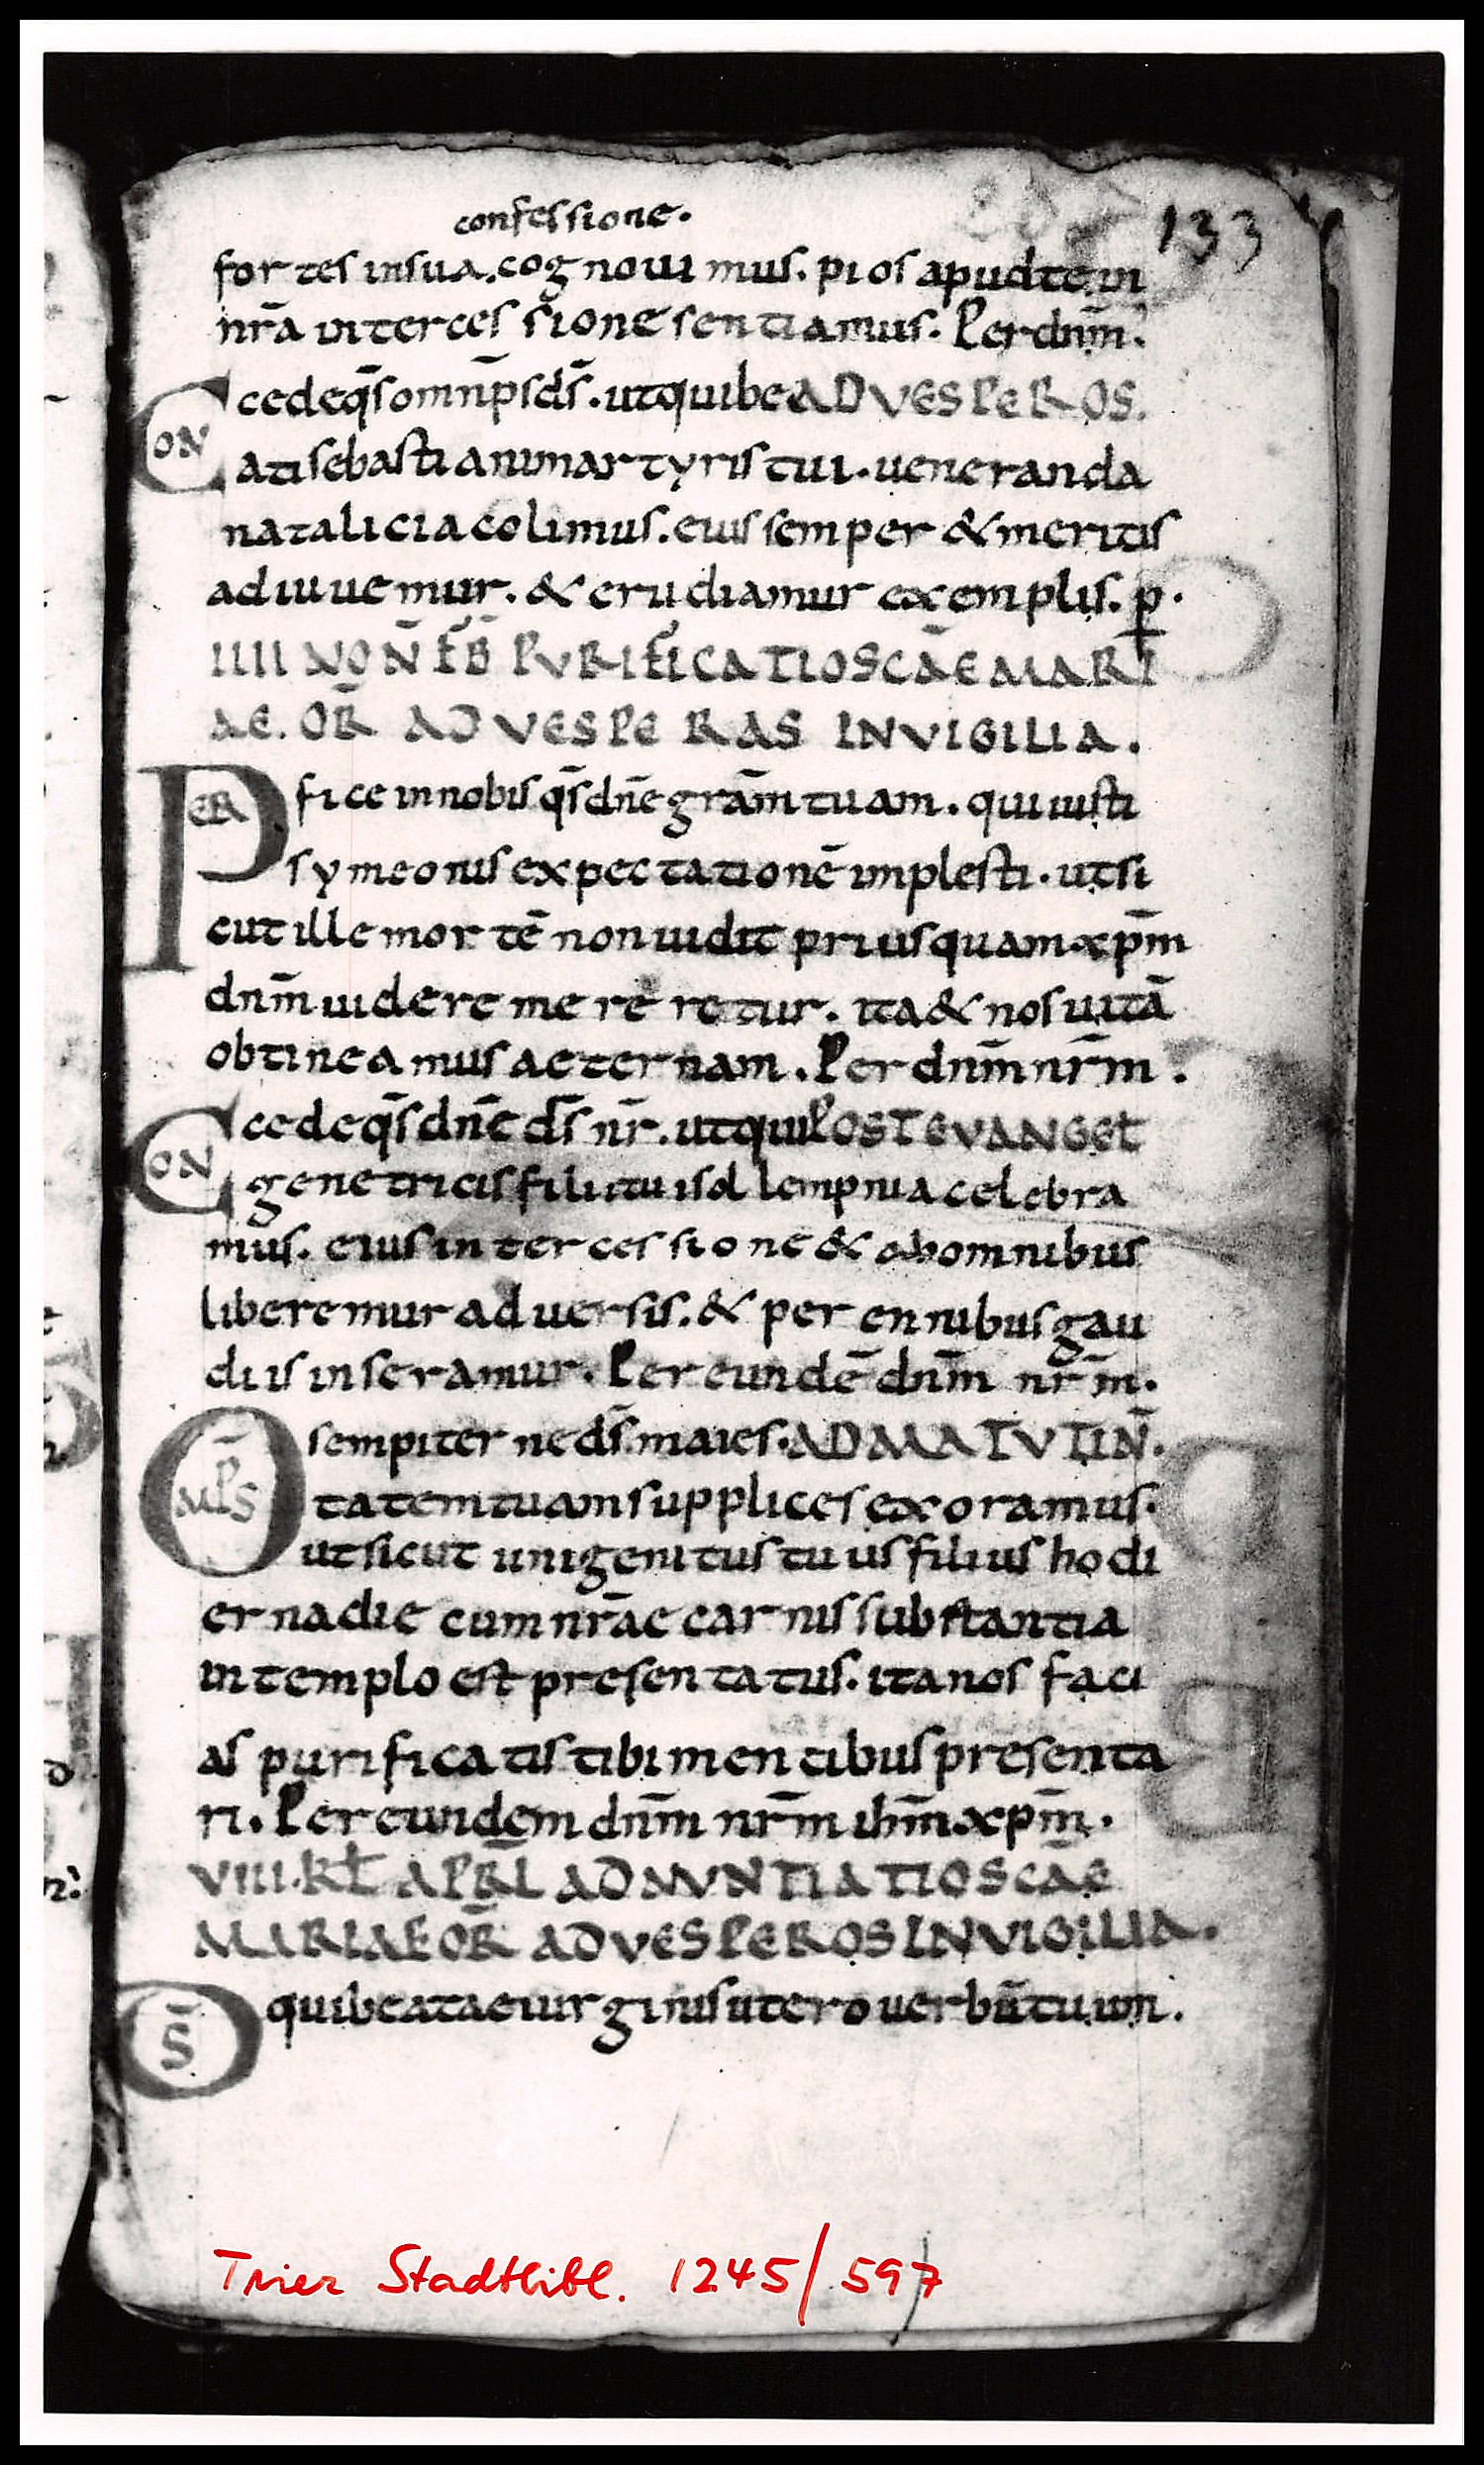 confessione.
133
fortes in sua. cognouimus. pios apud te in
nr̄a intercessione sentiamus. Per dnm̄.
CONcede qs̄ omn̄ps ds̄. ut qui be AD VESPEROS.
ati sebastiani martyris tui. ueneranda
natalicia colimus. eius semper & meritis
adiuuemur. & erudiamur exemplis. p.
IIII NON̄ FB̄ PURIFICATIO SCĀE MARI
AE. OR̄ AD VESPERAS IN VIGILIA.
PERfice in nobis qs̄ dnē grām tuam. qui iusti
symeonis expectationē implesti. ut si
cut ille mortē non uidit prius quam xpm̄
dnm̄ uidere mereretur. ita & nos uitā
obtineamus aeternam. Per dnm̄ nrm̄.
CONcede qs̄ dnē ds̄ nr̄. ut qui POST EVANGEL
genetricis filii tui sollempnia celebra
mus. eius intercessione & ab omnibus
liberemur aduersis. & perennibus gau
diis inseramur. Per eundē dnm̄ nrm̄.
OMP̄S sempiterne ds̄. maies. AD MATUTIN̄.
tatem tuam supplices exoramus.
ut sicut unigenitus tuus filius hodi
erna die cum nr̄ae carnis substantia
in templo est presentatus. ita nos faci
as purificatis tibi mentibus presenta
ri. Per eundem dnm̄ nrm̄ ihm̄ xpm̄.
VIII. KL APRL̄ ADNUNTIATIO SCĀE
MARIAE OR̄ AD VESPEROS IN VIGILIA.
DS̄ qui beatae uirginis utero uerbū tuum.
Trier Stadtbibl. 1245/597